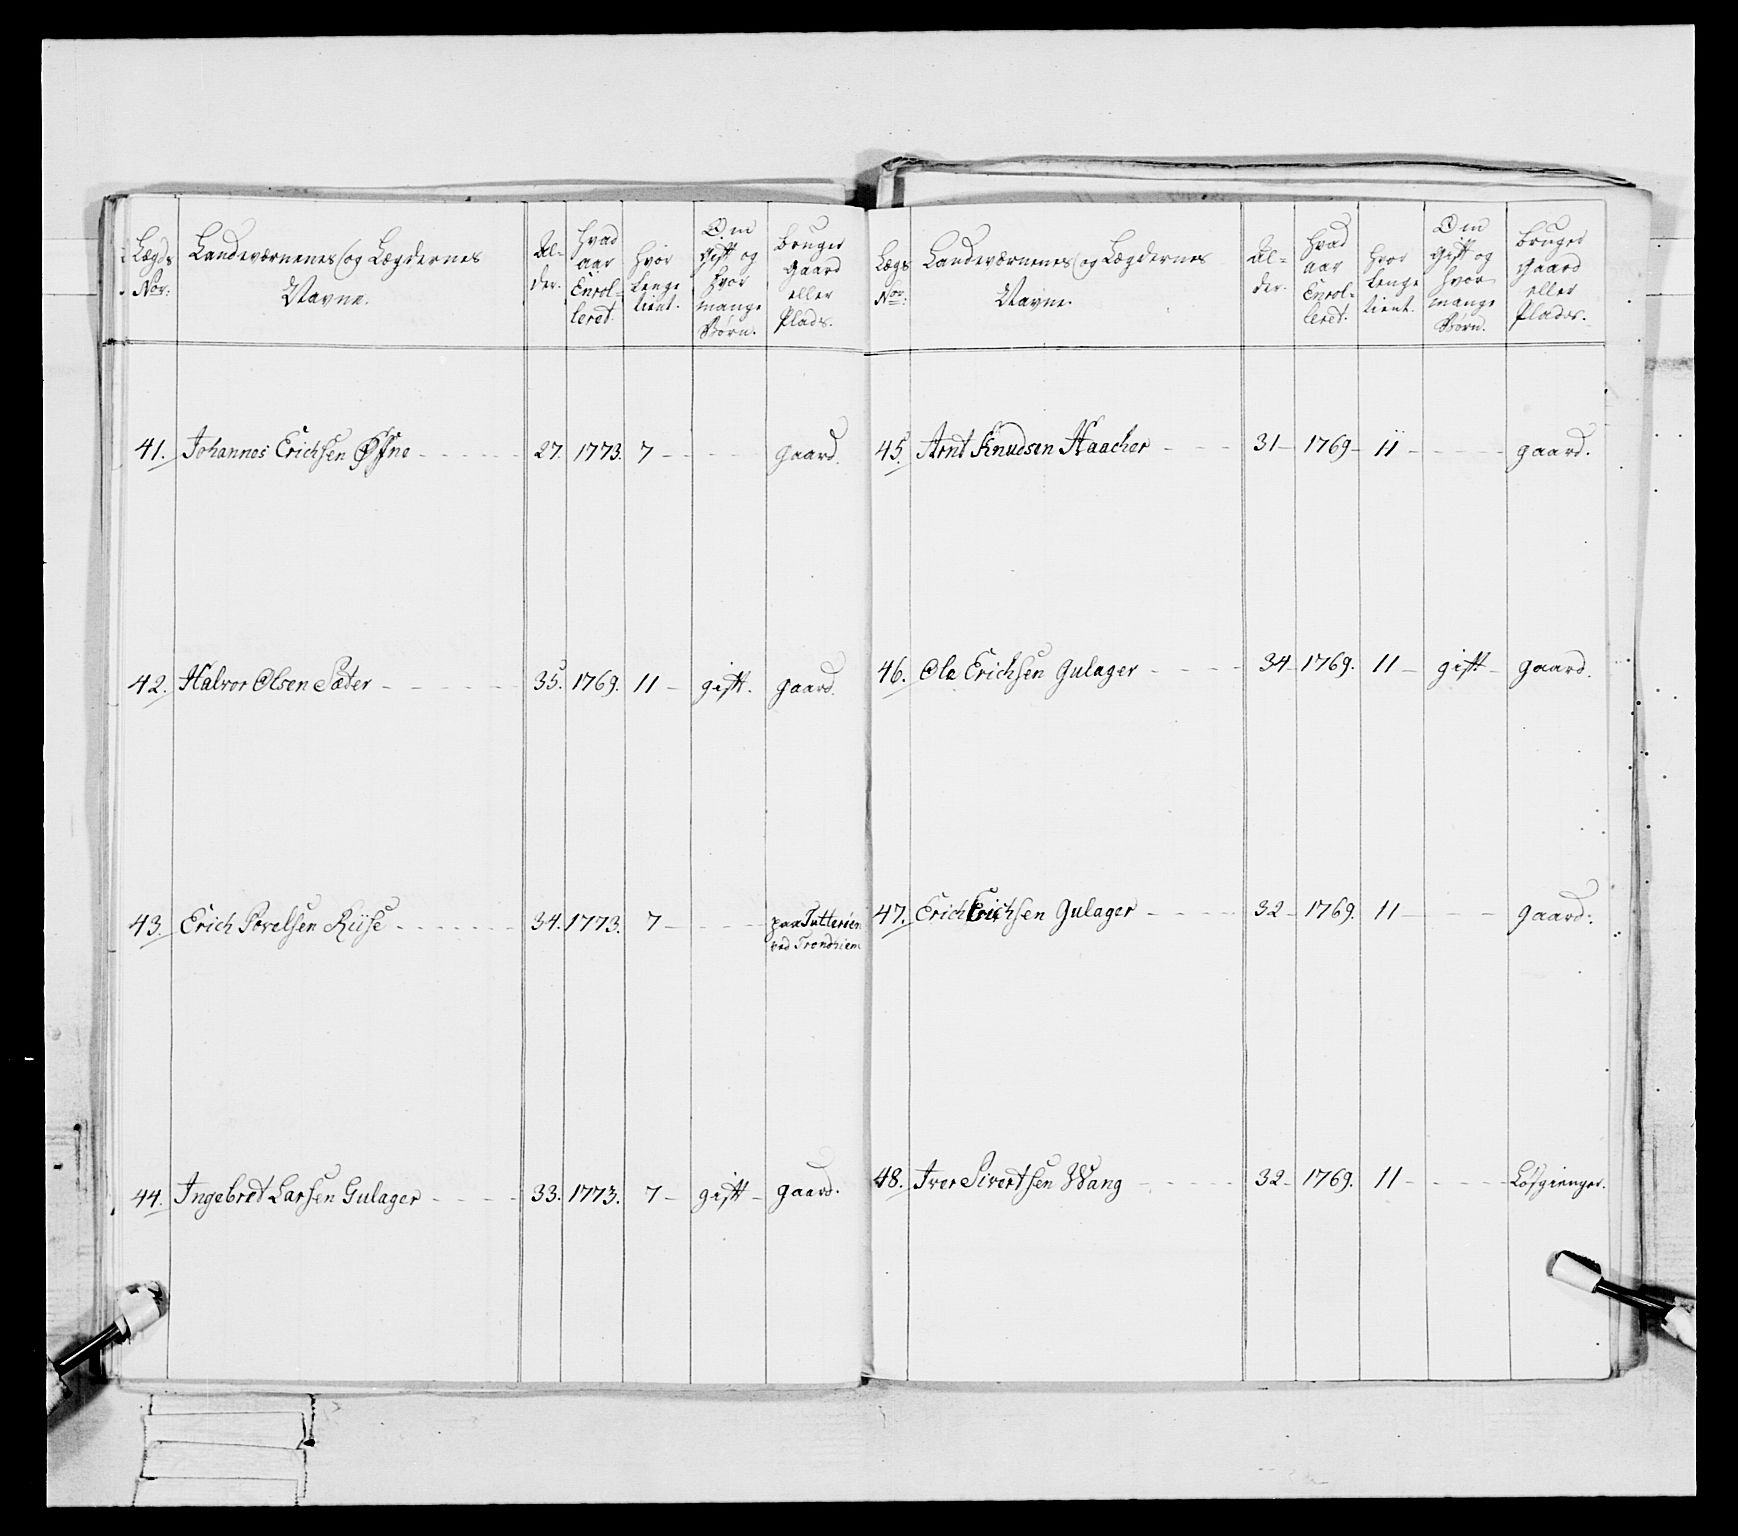 Lægds Nor: Landeværnenes og Lægdernes Navne. Alder. Hvad Aar Enrolleret. Hvor Lenge tient. Om gift og hvor mange Børn. Bruger Gaard eller Plads.
41. Johannes Erichsen Øfne - - - - - 27. 1773. 7 - - - - Gaard.
42. Halvor Olsen Sæter - - - - - 35. 1769. 11 - gift. gaard.
43. Erich Povelsen Riise - - - - - - 34. 1773. 7 - - - - paa Tutterøen
ved Trondhiem
44. Ingebret Larsen Gulager - - - - 33. 1773. 7 - gift - gaard.
Lægs Nor: Landeværnenes og Lægdernes Navne. Alder. Hvad Aar Enrolleret. Hvor Lenge tient. Om gift og hvor mange Børn. Bruger Gaard eller Plads.
45. Arnt Knudsen Haacher - - - - 31 - 1769 - 11 - - - - - gaard.
46. Ole Erichsen Gulager - - - - 34 - 1769. 11 - gift - gaard.
47. Erich Erichsen Gulager - - - - 32 - 1769. 11 - - - - gaard.
48. Iver Sivertsen Wang - - - - - 32 - 1769. 11 - - - - - Løsgienger.